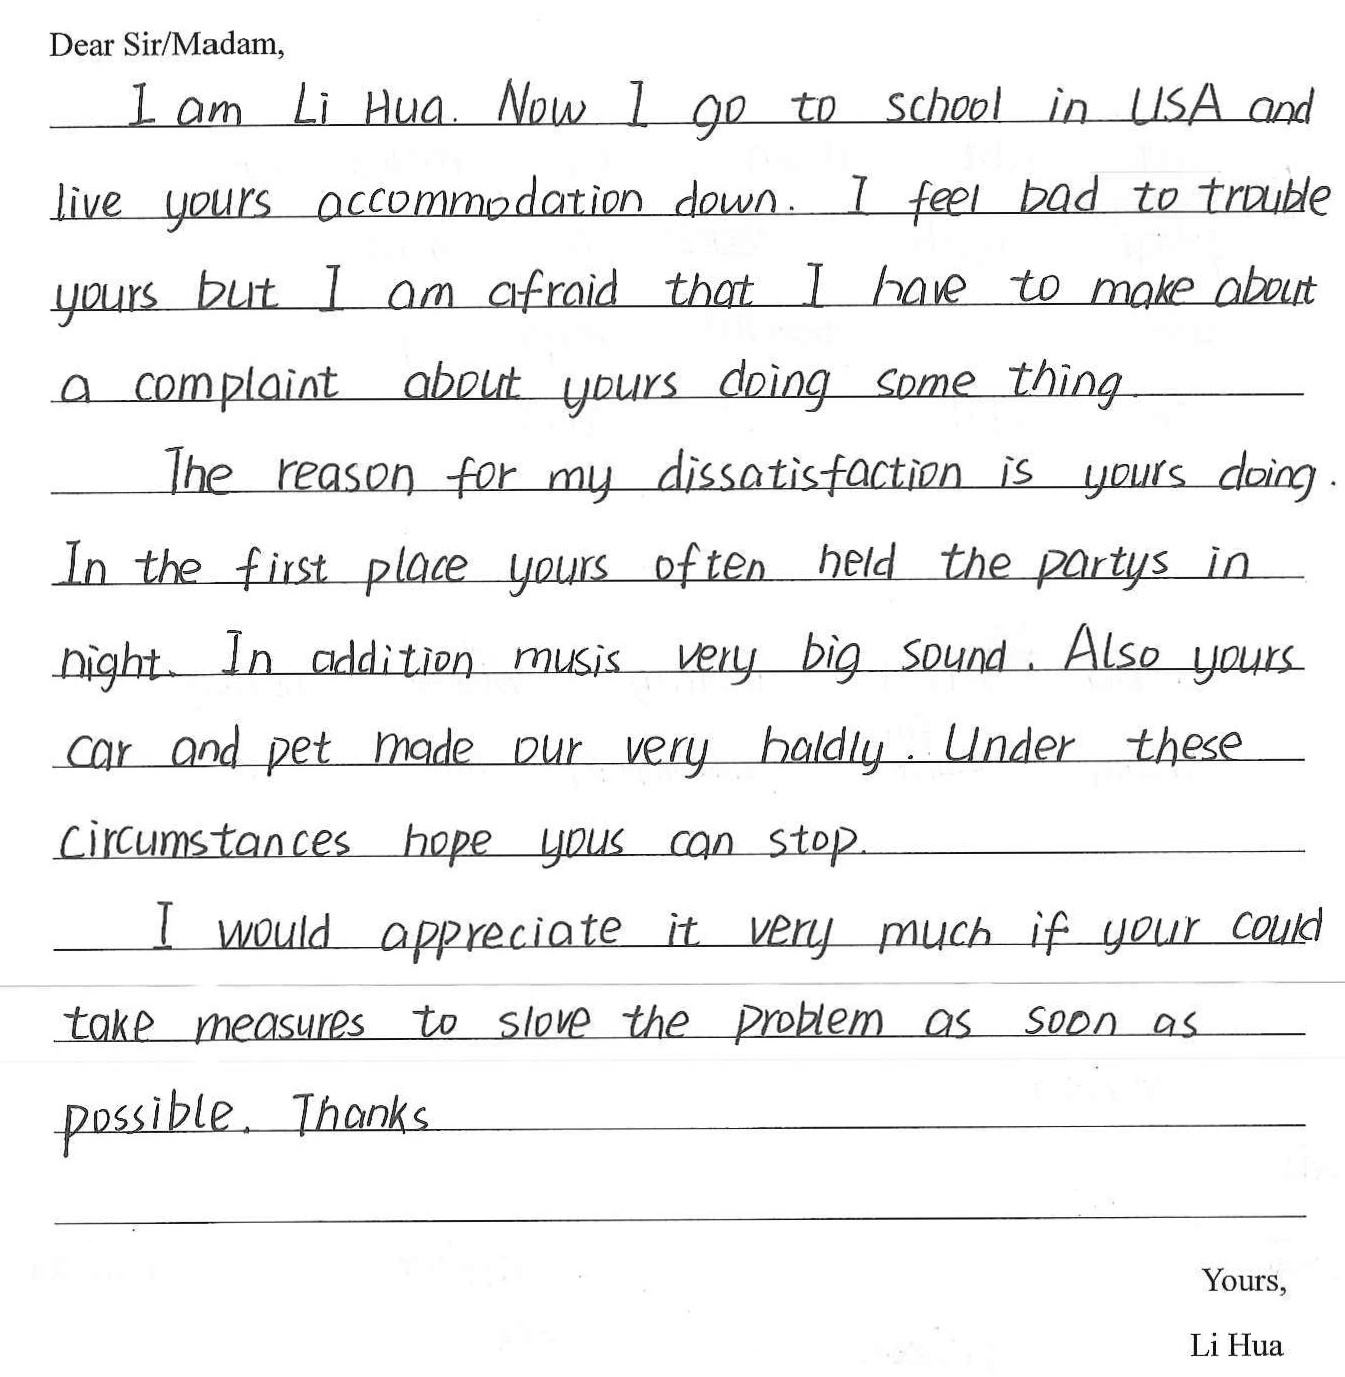 Dear Sir/Madam,
I am Li Hua. Now I go to school in USA and
live yours accommodation down. I feel bad to trouble
yours but I am afraid that I have to make about
a complaint about yours doing some thing
The reason for my dissatisfaction is yours doing.
In the first place yours often held the partys in
night. In addition musis very big sound. Also yours
car and pet made our very haldly. Under these
circumstances hope yous can stop.
I would appreciate it very much if your could
take measures to slove the problem as soon as
possible. Thanks
Yours,
Li Hua